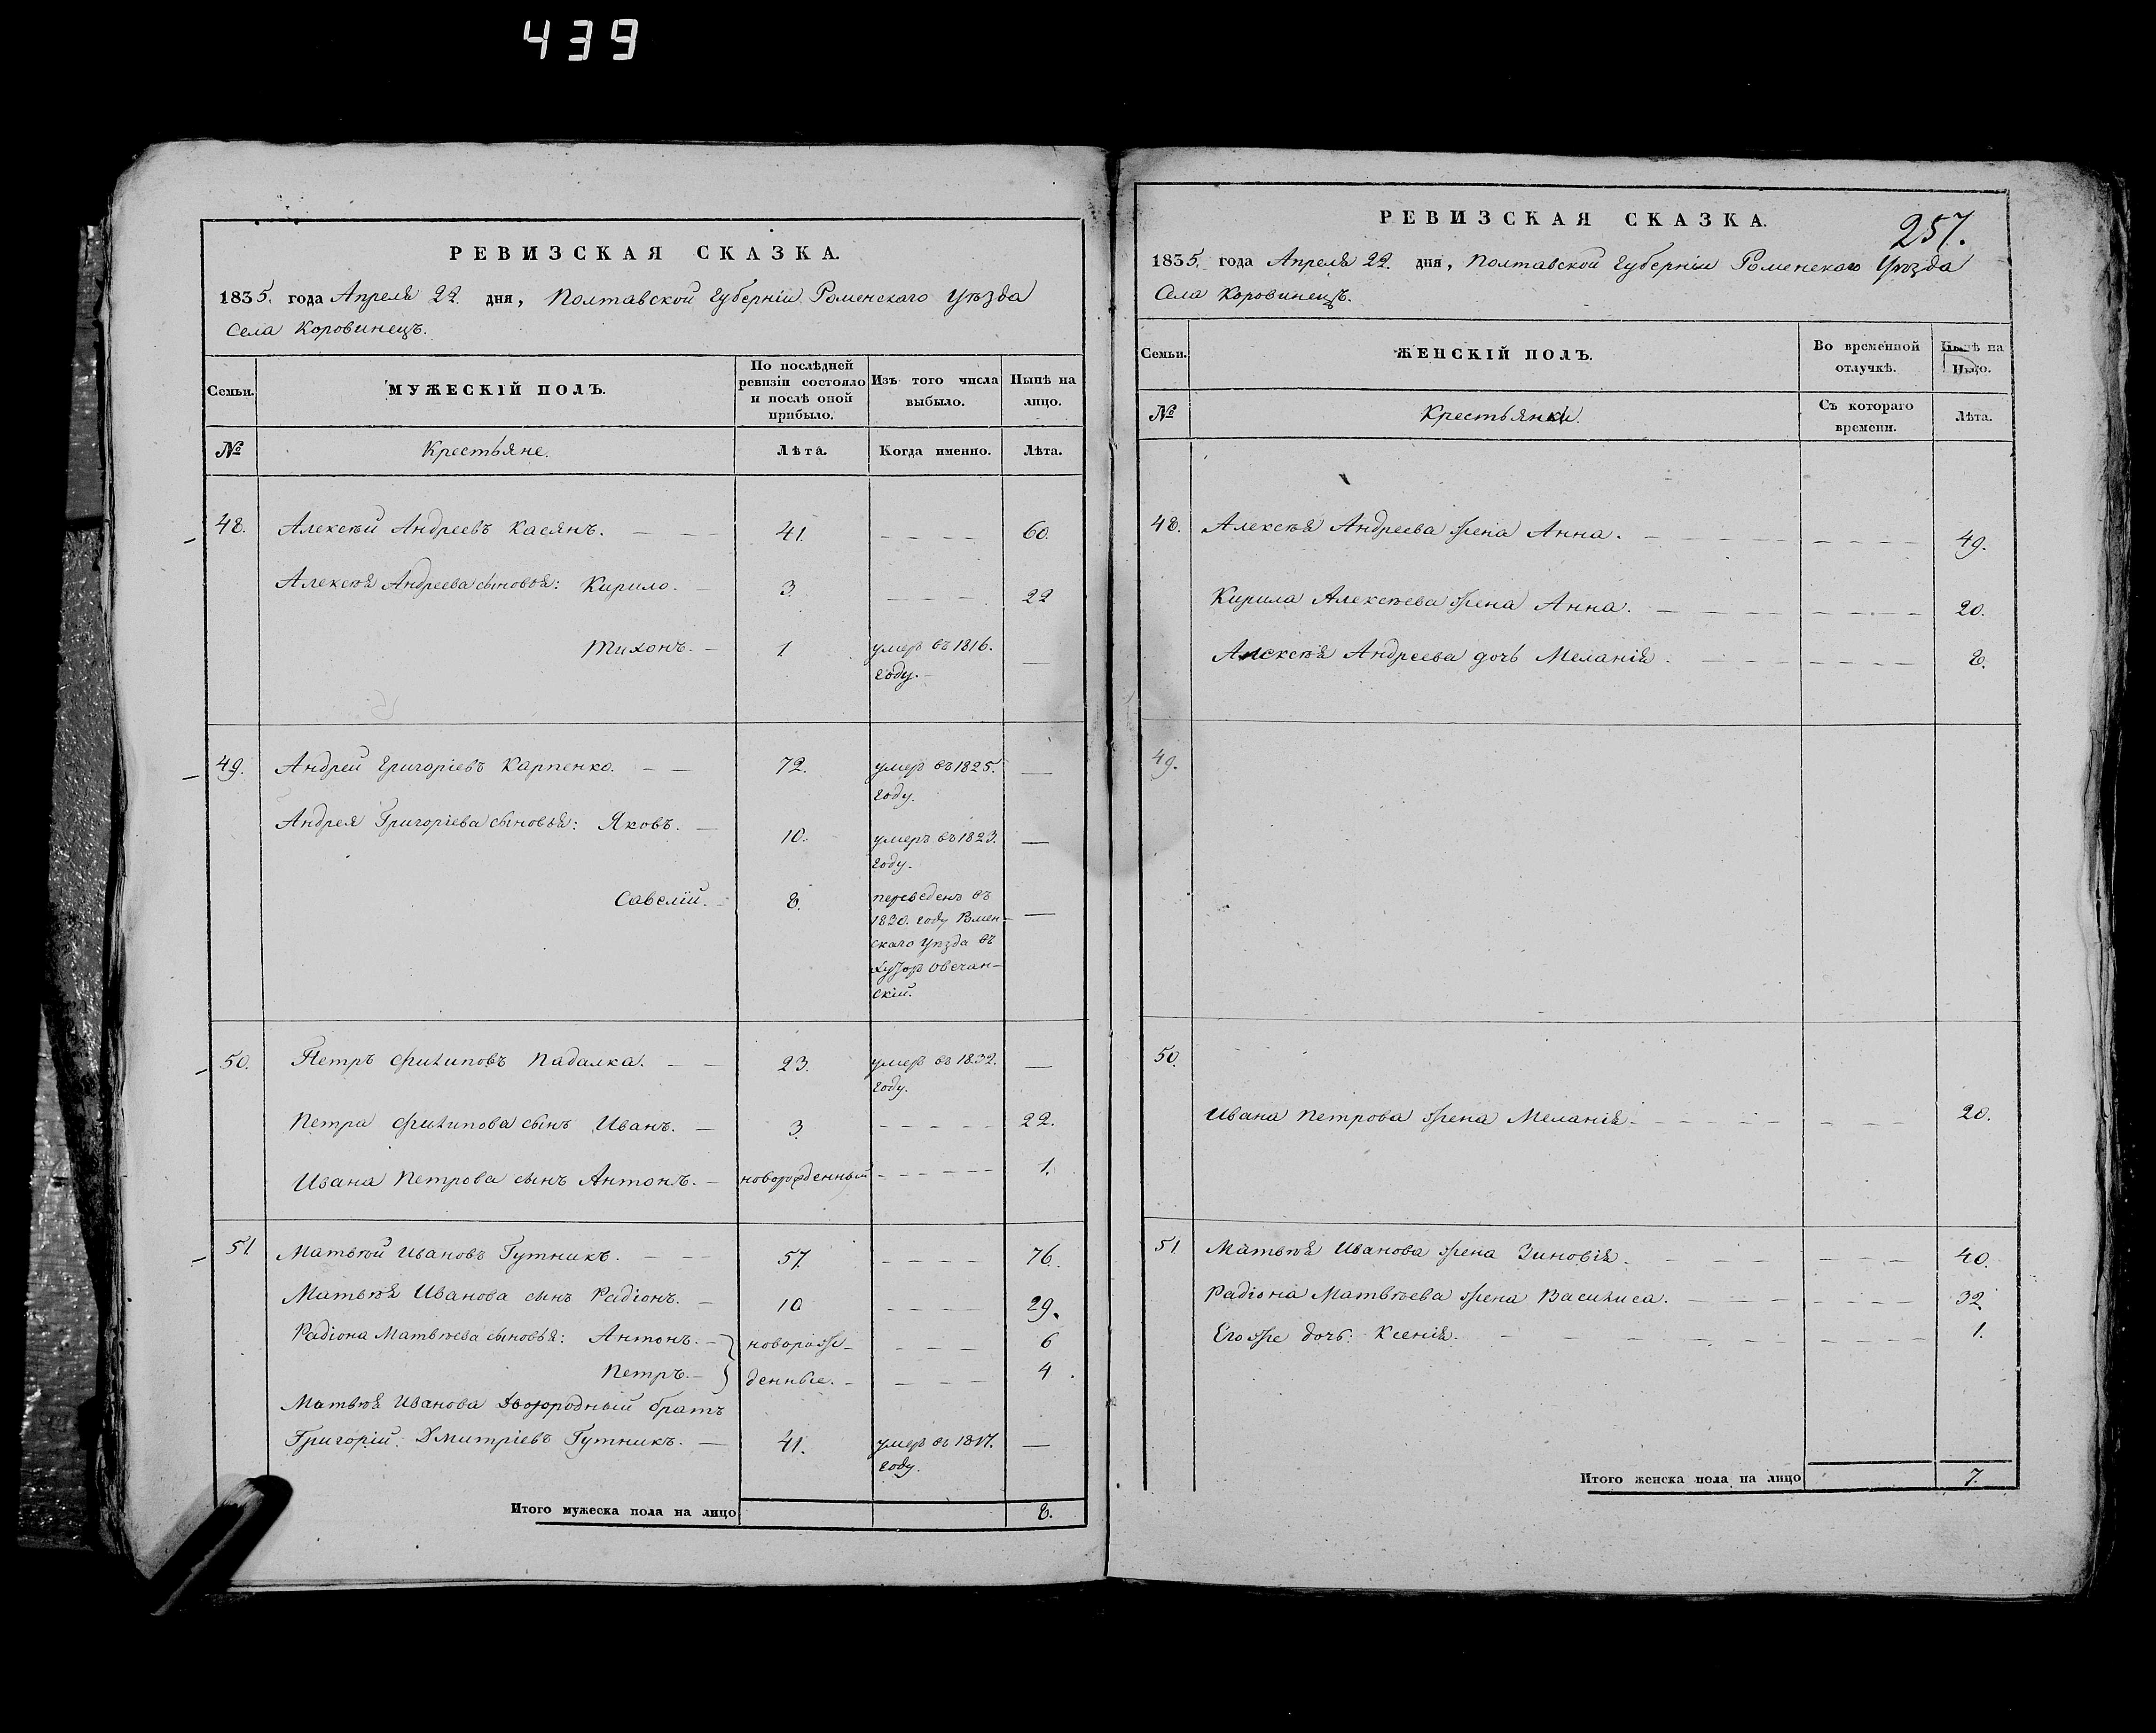 439
РЕВИЗСКАЯ СКАЗКА.
1835. года Апреля 22. дня, Полтавской Губерніи Роменскаго Уѣзда
Села Коровинецъ.
Семьи.
МУЖЕСКІЙ ПОЛЪ.
По послѣдней
ревизіи состояло
и послѣ оной
прибыло.
Изъ того числа
выбыло.
Нынѣ на
лицо.
№
Крестьяне.
Лѣта.
Когда именно.
Лѣта.
48. Алексѣй Андреевъ Касянъ. 41. 60.
Алексѣя Андреева сыновья: Кирило. 3. 22
Тихонъ. 1. умеръ въ 1816.
году.
49. Андрей Григоріевъ Карпенко. 72. умеръ въ 1825.
году.
Андрея Григоріева сыновья: Яковъ. 10. умеръ въ 1823.
году.
Савелій. 8. переведенъ въ
1830. году Ромен-
скаго уѣзда въ
хуторъ Овечан-
скій.
50. Петръ Филиповъ Падалка. 23. умеръ въ 1832.
году.
Петра Филипова сынъ Иванъ. 3. 22.
Ивана Петрова сынъ Антонъ. новорожденный 1.
51 Матвѣй Ивановъ Гутникъ. 57. 76.
Матвѣя Иванова сынъ Радіонъ. 10 29.
Радіона Матвѣева сыновья: Антонъ. новорож- 6
Петръ. денные. 4.
Матвѣя Иванова Двоюродный братъ
Григорій Дмитріевъ Гутникъ. 41. умеръ въ 1817.
году.
Итого мужеска пола на лицо 8.
257.
РЕВИЗСКАЯ СКАЗКА.
1835. года Апреля 22. дня, Полтавской Губерніи Роменскаго Уѣзда
Села Коровинецъ.
Семьи.
ЖЕНСКІЙ ПОЛЪ.
Во временной
отлучкѣ.
Нынѣ на
лицо.
№
Крестьянки.
Съ котораго
времени.
Лѣта.
48. Алексѣя Андреева жена Анна. 49.
Кирила Алексѣева жена Анна. 20.
Алексѣя Андреева дочь Меланія. 8.
49.
50.
Ивана Петрова жена Меланія. 20.
51 Матвѣя Иванова жена Зиновія. 40.
Радіона Матвѣева жена Василиса. 32.
Его же дочь: Ксенія. 1.
Итого женска пола на лицо 7.